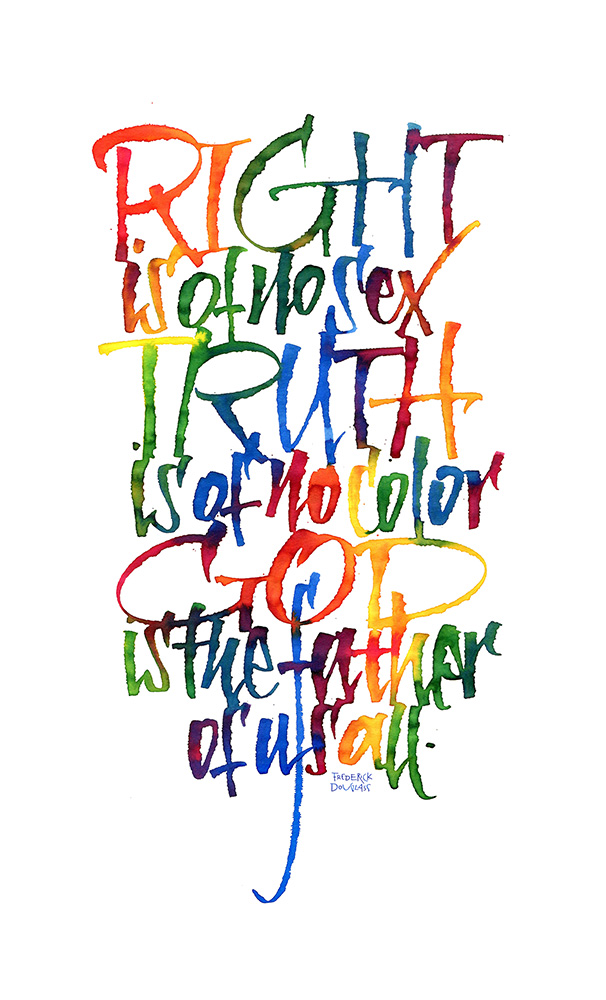 RIGHT
is of no sex
TRUTH
is of no color
GOD
is the father
of us all.
FREDERICK
DOUGLASS